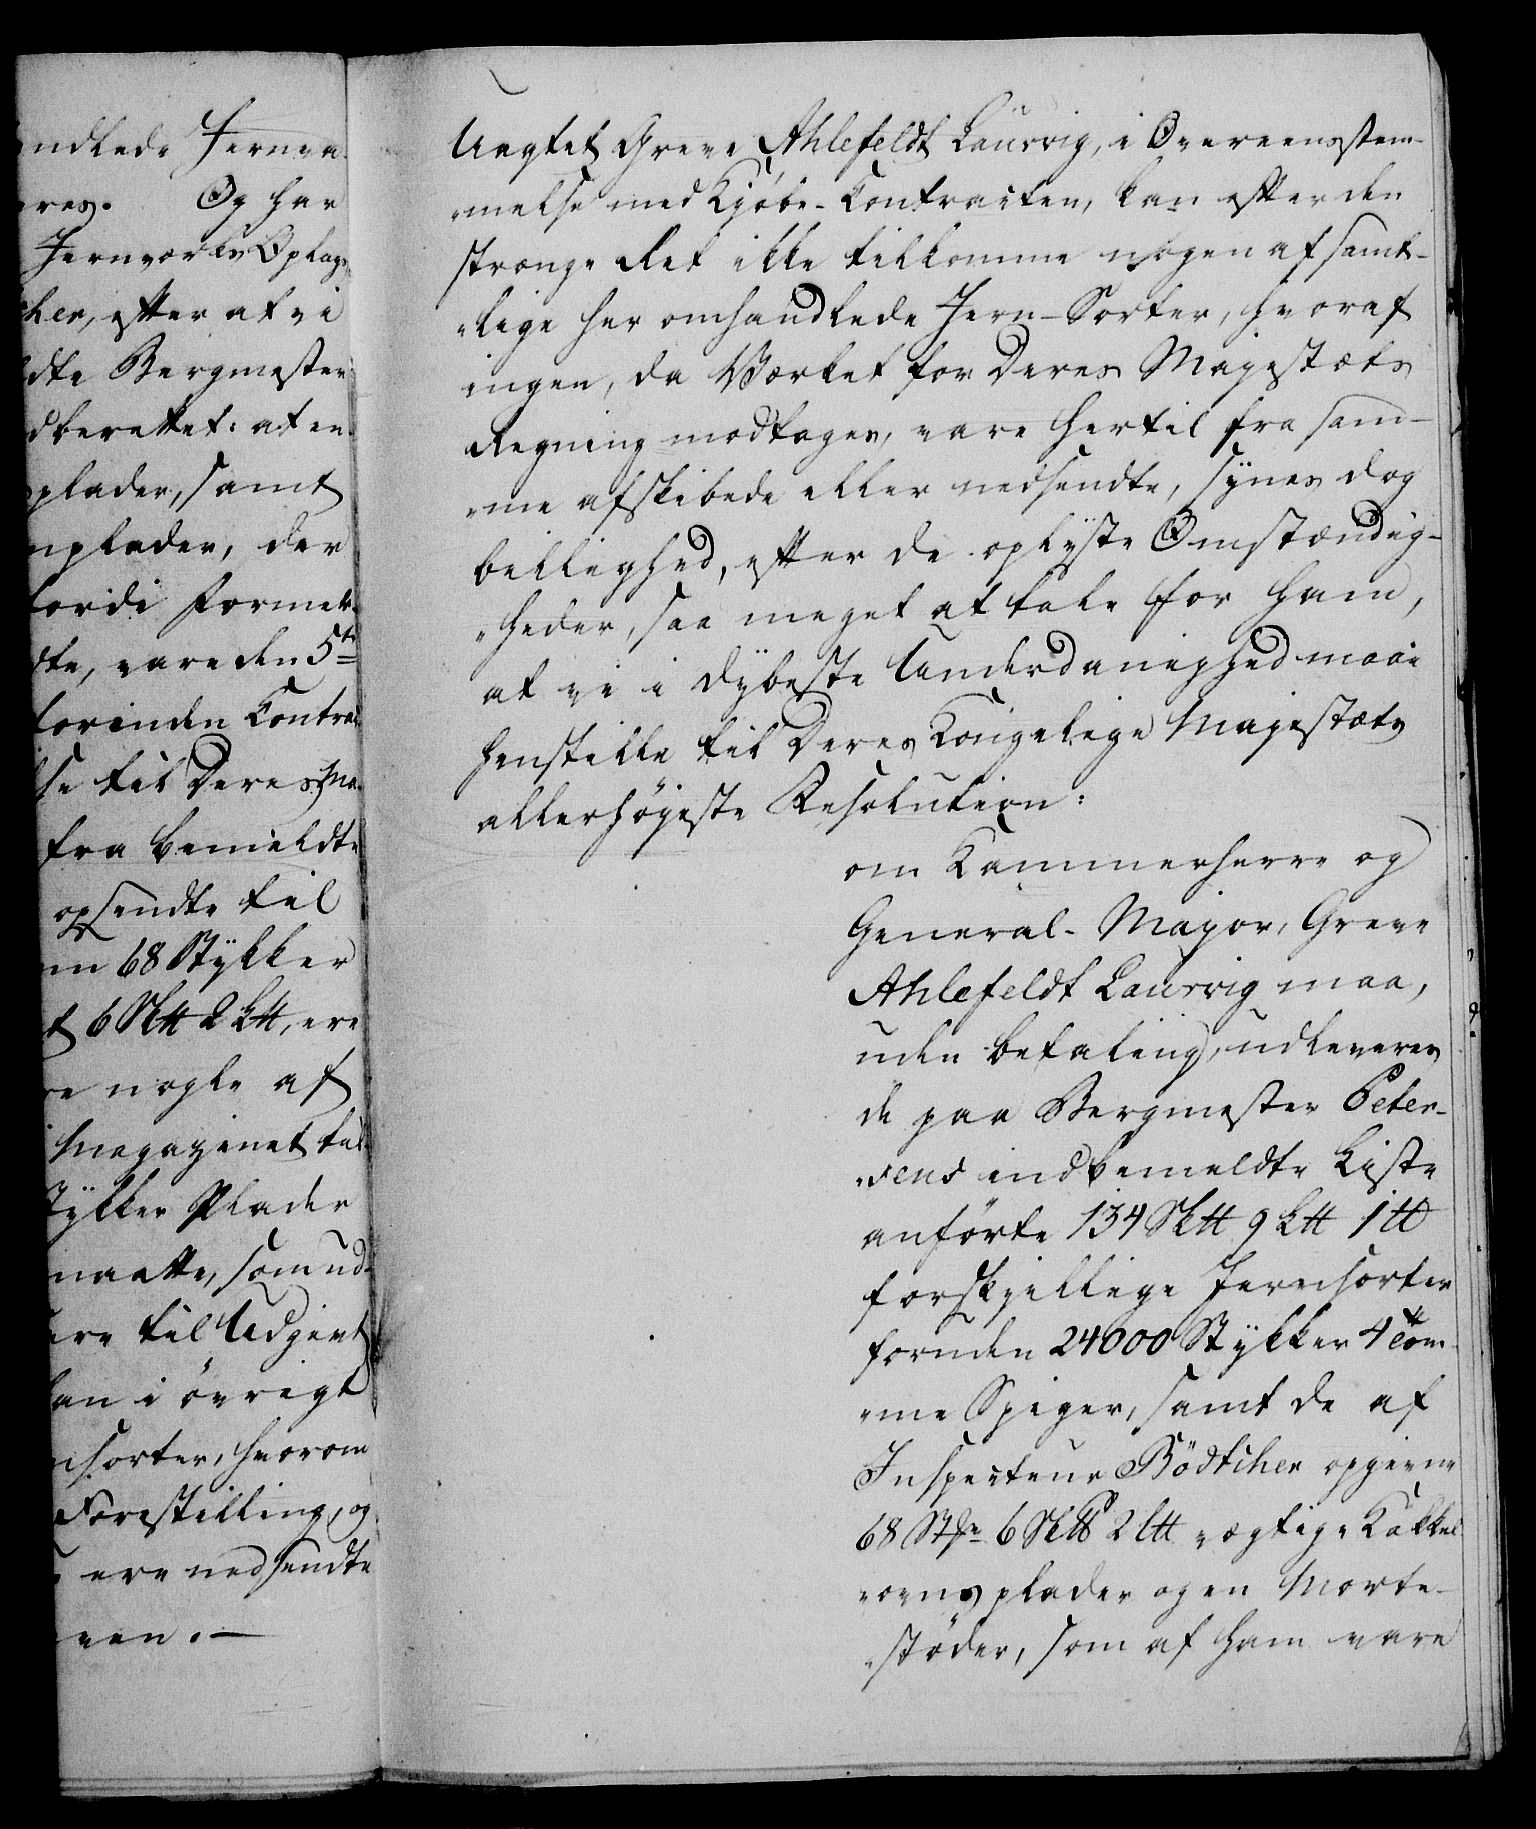 ndlede Jernva-
eres. Og har
Jernværkes Oplags
cher, efter at vi
dte Bergmester
dberettet: at en
plader, samt
nplader, der
fordi Formel-
dte, vare den 5te
forinden Contra-
se til Deres Ma-
fra bemeldte
opsendte til
m 68 Stykker
t 6 Sk℔ 2 L℔, ere
re nogle af
Magazinet til-
Stykker Plader
maatte, som ud-
ere til Udgivt
han i øvrigt
nsorter, hvorom
Forestilling, og
ere nedsendte
ven.—
Uagtet Greve Ahlefeldt Laurvig, i Overeensstem-
"melse med Kjøbe-Contracten, kan efter den
strænge Ret ikke tilkomme nogen af samt-
"lige her omhandlede Jern-Sorter, hvoraf
ingen, da Værket for Deres Majestæts
Regning modtages, vare hertil fra sam-
"me afskibede eller nedsendte, synes dog
billighed, efter de oplyste Omstændig-
"heder, saa meget at tale for ham,
at vi i dybeste Underdanighed maae
henstille til Deres Kongelige Majestæts
allerhøjeste Resolution:
om Kammerherre og
General-Major, Greve
Ahlefeldt Laurvig maa,
uden betaling, udleveres
de paa Bergmester Peter-
"sens indbemeldte Liste
anførte 134 Sk℔ 9 L℔ 1 ℔
forskjellige Jernsorter
foruden 24000 Stykker 4 tom-
"me Spiger, samt de af
Inspecteur Bödtcher opgivne
68 Stkr 6 Sk℔ 2 L℔ vægtige Kakkel
"ovns plader og en Morte-
"støder, som af ham vare